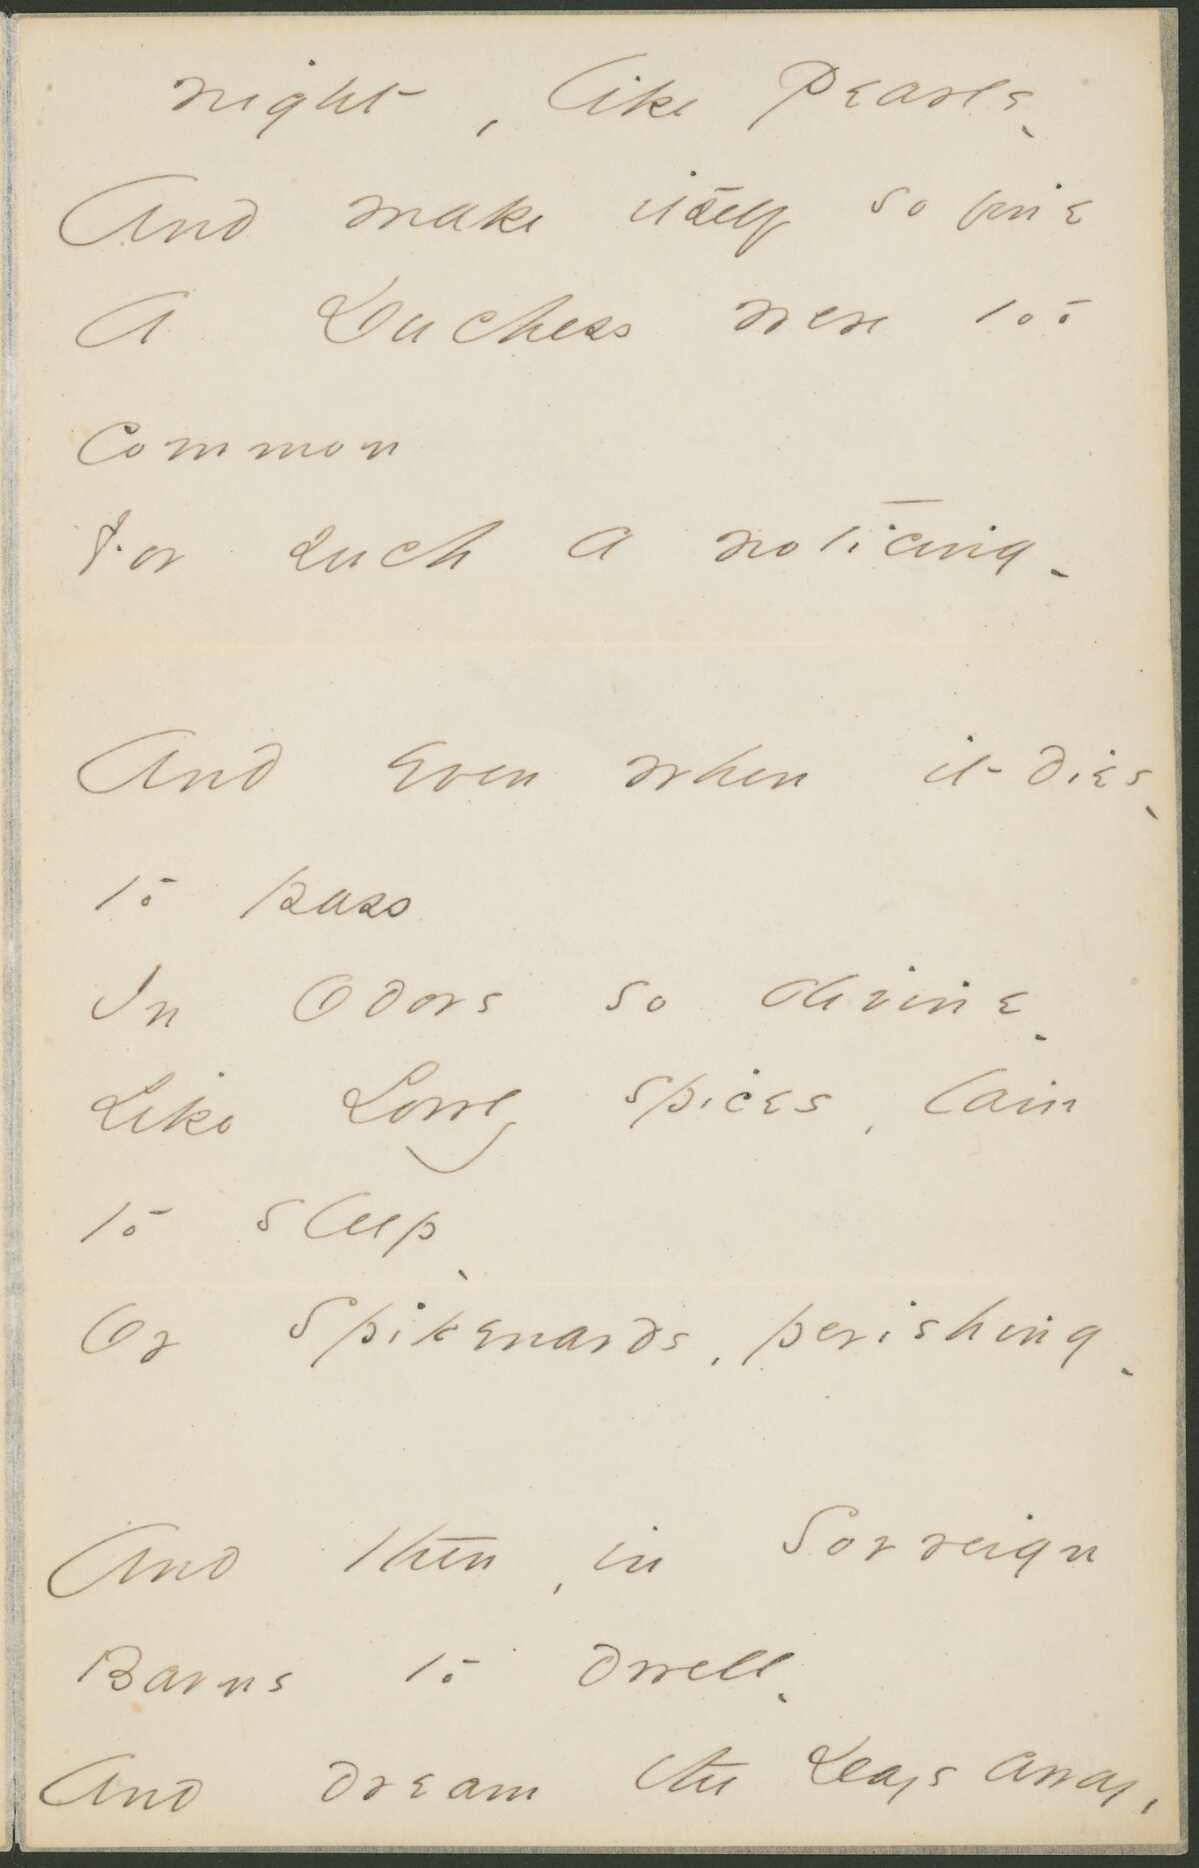 night, like Pearls -
And make itself so fine
A Duchess were too
Common
For such a noticing -
And even when it dies -
to pass
In Odors so divine -
Like Lowly spices, lain
to sleep -
Or Spikenards, perishing -
And then, in Sovreign
Barns to dwell -
And dream the Days away,